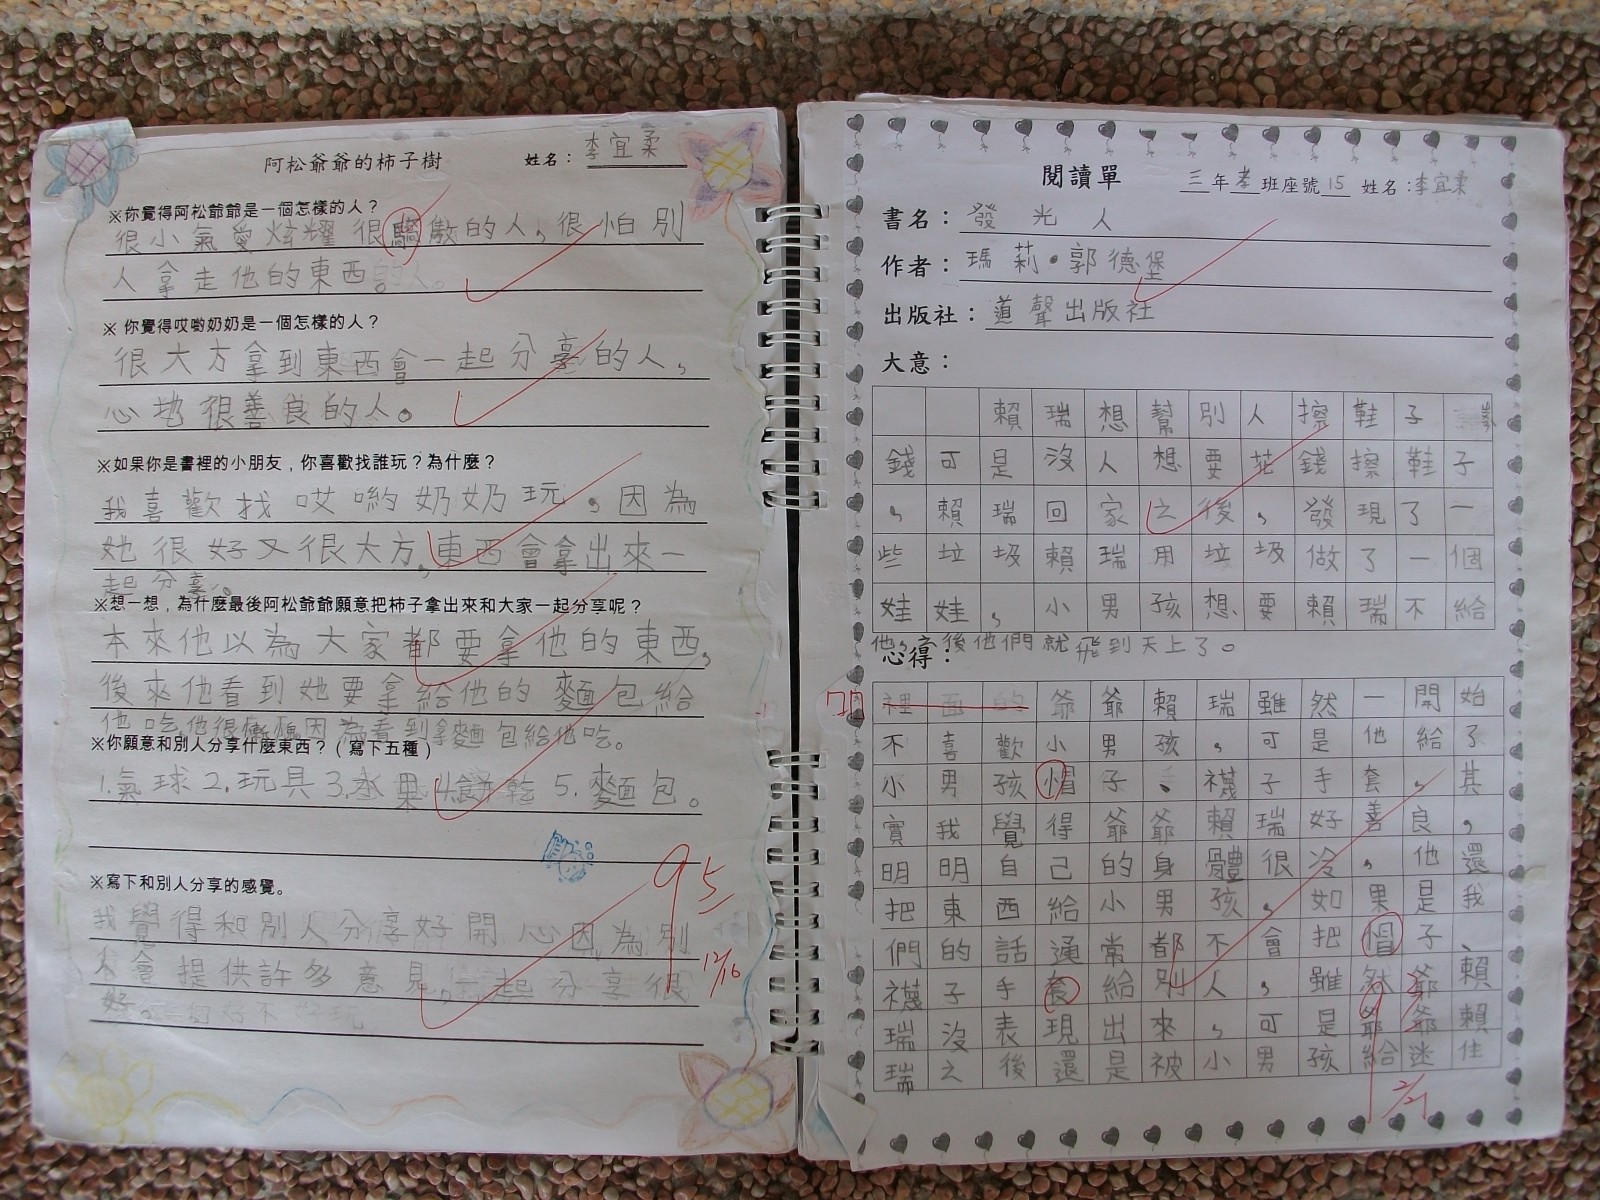 阿松爺爺的柿子樹
姓名：李宜柔
※你覺得阿松爺爺是一個怎樣的人？
很小氣愛炫耀很驕傲的人，很怕別
人拿走他的東西。
※ 你覺得哎喲奶奶是一個怎樣的人？
很大方拿到東西會一起分享的人，
心地很善良的人。
※如果你是書裡的小朋友，你喜歡找誰玩？為什麼？
我喜歡找哎喲奶奶玩，因為
她很好又很大方，東西會拿出來一
起分享。
※想一想，為什麼最後阿松爺爺願意把柿子拿出來和大家一起分享呢？
本來他以為大家都要拿他的東西，
後來他看到她要拿給他的麵包給
他吃，他很慚愧因為看到拿麵包給他吃。
※你願意和別人分享什麼東西？（寫下五種）
1.氣球2.玩具3.水果4.餅乾5.麵包。
※寫下和別人分享的感覺。
我覺得和別人分享好開心因為別
人會提供許多意見，一起分享很
好。
95
12/16
閱讀單
三年孝班座號15 姓名：李宜柔
書名：發光人
作者：瑪莉·郭德堡
出版社：道聲出版社
大意：
賴瑞想幫別人擦鞋子
錢可是沒人想要花錢擦鞋子
，賴瑞回家之後，發現了一
些垃圾賴瑞用垃圾做了一個
娃娃，小男孩想要賴瑞不給
他，後他們就飛到天上了。
心得：
裡面的爺爺賴瑞雖然一開始
不喜歡小男孩，可是他給了
小男孩帽子、襪子手套，其
實我覺得爺爺賴瑞好善良，
明明自己的身體很冷，他還
把東西給小男孩，如果是我
們的話通常都不會把帽子、
襪子手套給別人，雖然爺賴
瑞沒表現出來，可是爺爺賴
瑞之後還是被小男孩給迷住
2/21